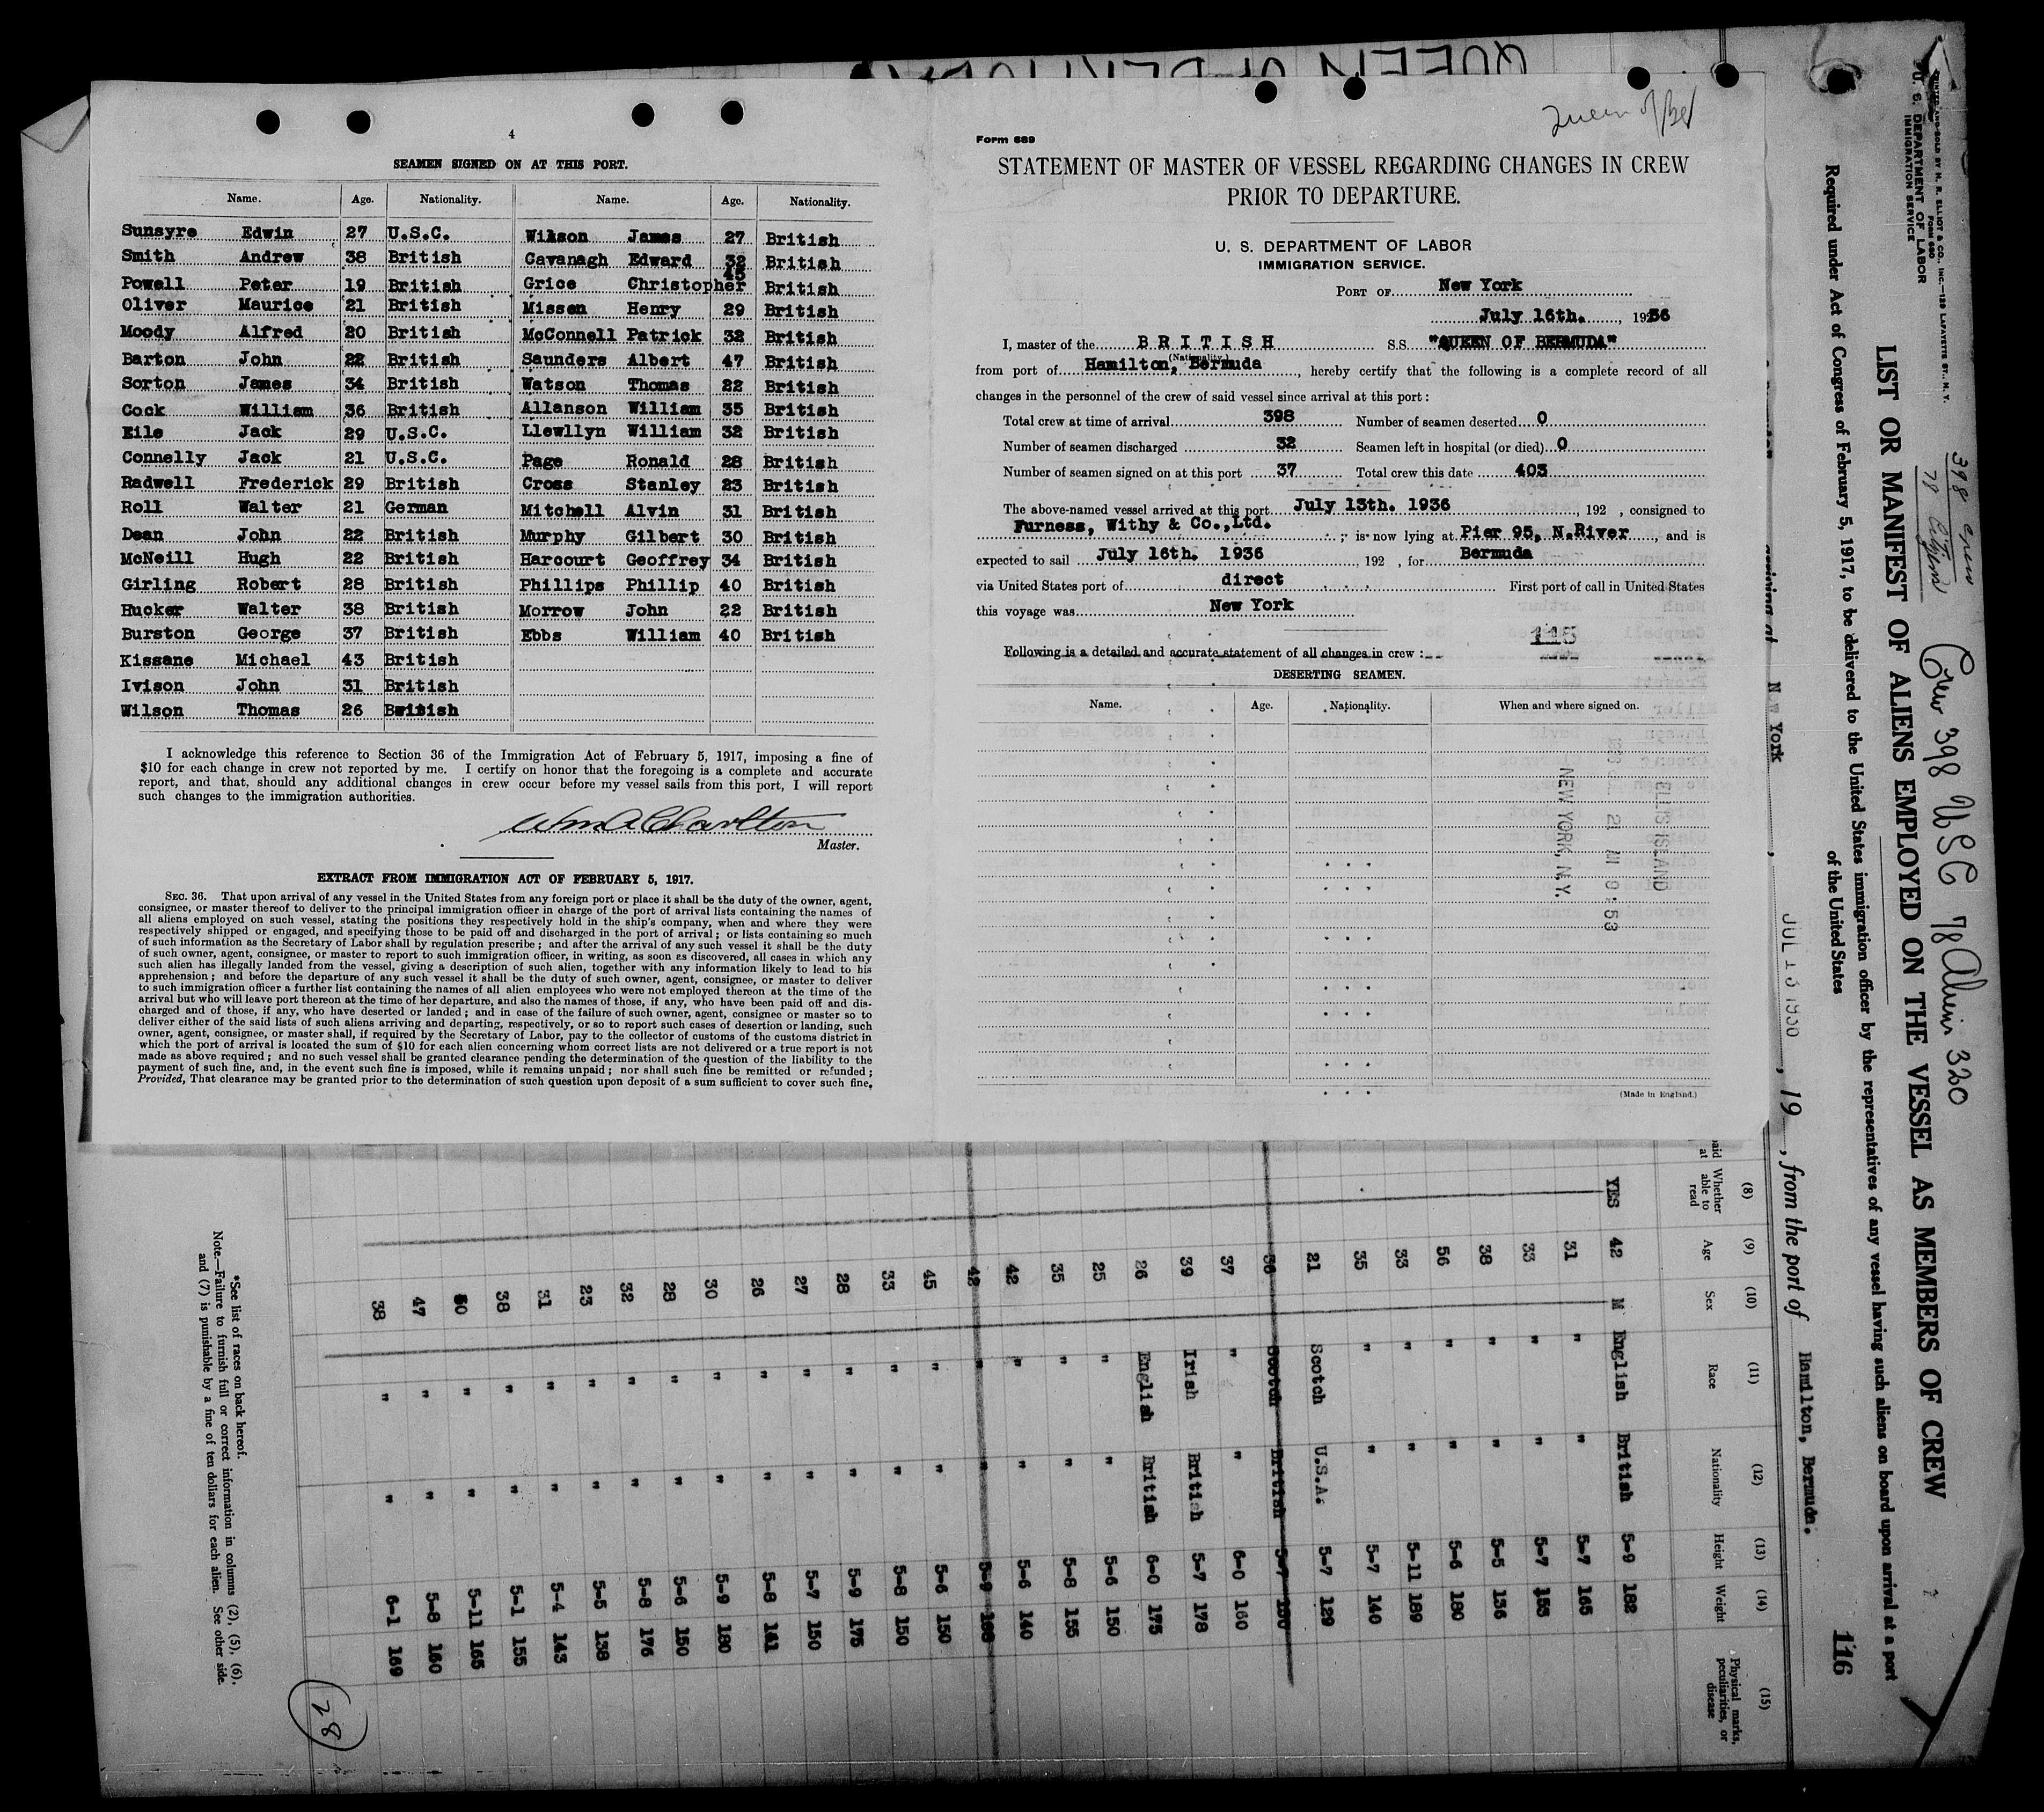 4
SEAMEN SIGNED ON AT THIS PORT.
Name. Age. Nationality. Name. Age. Nationality.
Sunsyre Edwin 27 U.S.C. Wilson James 27 British
Smith Andrew 38 British Cavanagh Edward 32 British
Powell Peter 19 British Grice Christopher 45 British
Oliver Maurice 21 British Missen Henry 29 British
Moody Alfred 20 British McConnell Patrick 32 British
Barton John 22 British Saunders Albert 47 British
Sorton James 34 British Watson Thomas 22 British
Cock William 36 British Allanson William 35 British
Eile Jack 29 U.S.C. Llewllyn William 32 British
Connelly Jack 21 U.S.C. Page Ronald 28 British
Radwell Frederick 29 British Cross Stanley 23 British
Roll Walter 21 German Mitchell Alvin 31 British
Dean John 22 British Murphy Gilbert 30 British
McNeill Hugh 22 British Harcourt Geoffrey 34 British
Girling Robert 28 British Phillips Phillip 40 British
Hucker Walter 38 British Morrow John 22 British
Burston George 37 British Ebbs William 40 British
Kissane Michael 43 British
Ivison John 31 British
Wilson Thomas 26 British
I acknowledge this reference to Section 36 of the Immigration Act of February 5, 1917, imposing a fine of
$10 for each change in crew not reported by me. I certify on honor that the foregoing is a complete and accurate
report, and that, should any additional changes in crew occur before my vessel sails from this port, I will report
such changes to the immigration authorities.
Wm A Charlton
Master.
EXTRACT FROM IMMIGRATION ACT OF FEBRUARY 5, 1917.
SEC. 36. That upon arrival of any vessel in the United States from any foreign port or place it shall be the duty of the owner, agent,
consignee, or master thereof to deliver to the principal immigration officer in charge of the port of arrival lists containing the names of
all aliens employed on such vessel, stating the positions they respectively hold in the ship's company, when and where they were
respectively shipped or engaged, and specifying those to be paid off and discharged in the port of arrival; or lists containing so much
of such information as the Secretary of Labor shall by regulation prescribe; and after the arrival of any such vessel it shall be the duty
of such owner, agent, consignee, or master to report to such immigration officer, in writing, as soon as discovered, all cases in which any
such alien has illegally landed from the vessel, giving a description of such alien, together with any information likely to lead to his
apprehension; and before the departure of any such vessel it shall be the duty of such owner, agent, consignee, or master to deliver
to such immigration officer a further list containing the names of all alien employees who were not employed thereon at the time of the
arrival but who will leave port thereon at the time of her departure, and also the names of those, if any, who have been paid off and dis-
charged and of those, if any, who have deserted or landed; and in case of the failure of such owner, agent, consignee or master so to
deliver either of the said lists of such aliens arriving and departing, respectively, or so to report such cases of desertion or landing, such
owner, agent, consignee, or master shall, if required by the Secretary of Labor, pay to the collector of customs of the customs district in
which the port of arrival is located the sum of $10 for each alien concerning whom correct lists are not delivered or a true report is not
made as above required; and no such vessel shall be granted clearance pending the determination of the question of the liability to the
payment of such fine, and, in the event such fine is imposed, while it remains unpaid; nor shall such fine be remitted or refunded;
Provided, That clearance may be granted prior to the determination of such question upon deposit of a sum sufficient to cover such fine,
QUEEN OF BERMUDA
Queen of Ber
Form 689
STATEMENT OF MASTER OF VESSEL REGARDING CHANGES IN CREW
PRIOR TO DEPARTURE.
U. S. DEPARTMENT OF LABOR
IMMIGRATION SERVICE.
PORT OF New York
July 16th. , 1936
I, master of the BRITISH S.S. "QUEEN OF BERMUDA"
(Nationality.)
from port of Hamilton, Bermuda, hereby certify that the following is a complete record of all
changes in the personnel of the crew of said vessel since arrival at this port:
Total crew at time of arrival 398 Number of seamen deserted 0
Number of seamen discharged 32 Seamen left in hospital (or died) 0
Number of seamen signed on at this port 37 Total crew this date 403
The above-named vessel arrived at this port July 13th. 1936, 192 , consigned to
Furness, Withy & Co.,Ltd. ; is now lying at Pier 95, N.River, and is
expected to sail July 16th. 1936, 192 , for Bermuda
via United States port of direct First port of call in United States
this voyage was New York
115
Following is a detailed and accurate statement of all changes in crew:
DESERTING SEAMEN.
Name. Age. Nationality. When and where signed on.
ELLIS ISLAND
21 AM 9:53
NEW YORK, N.Y.
(Made in England.)
U. S. DEPARTMENT OF LABOR
IMMIGRATION SERVICE
FORM 680
398 crew
78 citizens
Crew 398 USC 78 Aliens 320
LIST OR MANIFEST OF ALIENS EMPLOYED ON THE VESSEL AS MEMBERS OF CREW
Required under Act of Congress of February 5, 1917, to be delivered to the United States immigration officer by the representatives of any vessel having such aliens on board upon arrival at a port
of the United States
116
New York, , 19 , from the port of Hamilton, Bermuda.
(8) (9) (10) (11) (12) (13) (14) (15)
Whether able to read Age Sex Race Nationality Height Weight Physical marks, peculiarities, or disease
YES 42 M English British 5-9 182
31 " " 5-7 165
33 " " 5-7 155
38 " " 5-5 136
56 " " 5-6 180
33 " " 5-11 189
35 " " 5-7 140
21 Scotch U.S.A. 5-7 129
36 Scotch British 5-7
37 " " 6-0 160
39 Irish British 5-7 178
26 English British 6-0 175
25 " " 5-6 150
35 " " 5-8 155
42 " " 5-6 140
42 " " 5-9
45 " " 5-6 150
33 " " 5-8 150
28 " " 5-9 175
27 " " 5-7 150
26 " " 5-8 141
30 " " 5-9 180
28 " " 5-6 150
32 " " 5-8 176
23 " " 5-5 138
31 " " 5-4 143
38 " " 5-1 155
" " 5-11 165
47 " " 5-8 160
38 " " 6-1 169
*See list of races on back hereof.
Note.—Failure to furnish full or correct information in columns (2), (5), (6),
and (7) is punishable by a fine of ten dollars for each alien. See other side.
28